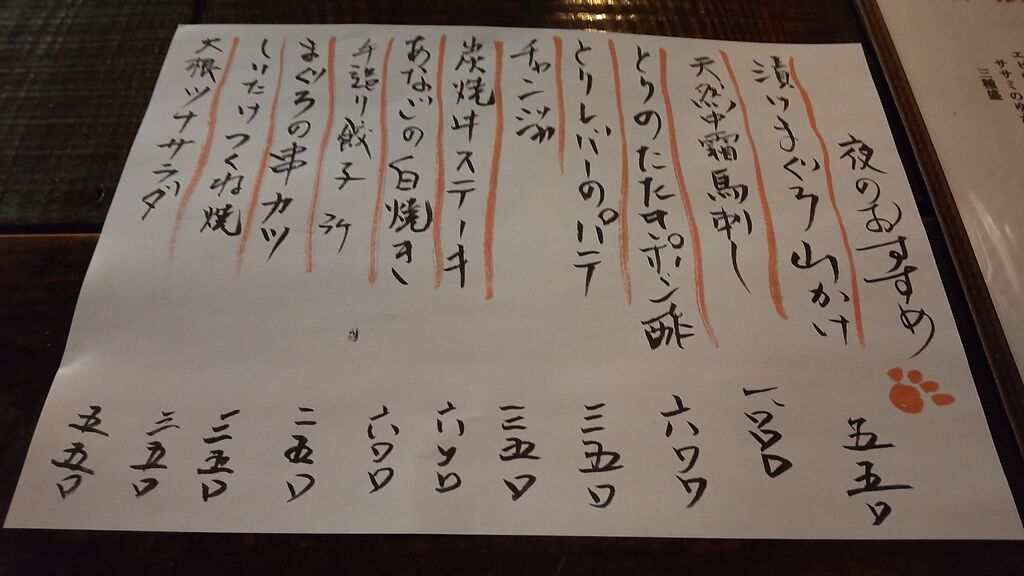 夜のおすすめ
漬けまぐろ山かけ 五五〇
天然中霜馬刺し 一、〇〇〇
とりのたたきポン酢 六〇〇
とりレバーのパテ 三五〇
チャンジャ 三五〇
炭焼牛ステーキ 六〇〇
あなごの白焼き 六〇〇
手造り餃子 3ケ 二五〇
まぐろの串カツ 三五〇
しいたけつくね焼 三五〇
大根ツナサラダ 五五〇
三種盛